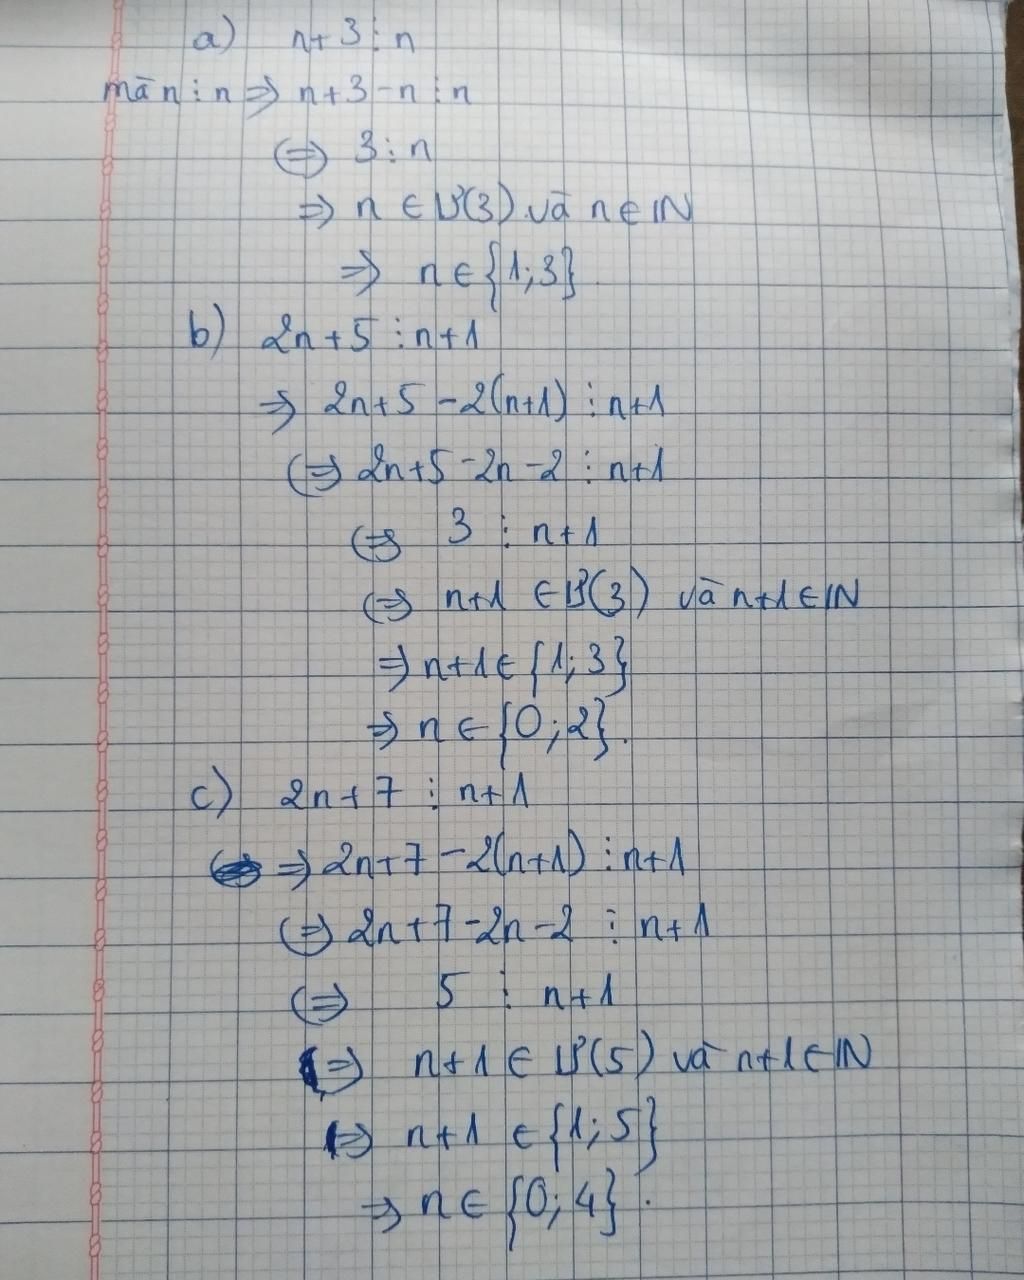 a) n+3 ⋮ n
mà n ⋮ n ⇒ n+3-n ⋮ n
⇔ 3 ⋮ n
⇒ n ∈ Ư(3) và n ∈ ℕ
⇒ n ∈ {1;3}
b) 2n+5 ⋮ n+1
⇒ 2n+5-2(n+1) ⋮ n+1
⇔ 2n+5-2n-2 ⋮ n+1
⇔ 3 ⋮ n+1
⇔ n+1 ∈ Ư(3) và n+1 ∈ ℕ
⇒ n+1 ∈ {1;3}
⇒ n ∈ {0;2}.
c) 2n+7 ⋮ n+1
⇒ 2n+7-2(n+1) ⋮ n+1
⇔ 2n+7-2n-2 ⋮ n+1
⇔ 5 ⋮ n+1
⇔ n+1 ∈ Ư(5) và n+1 ∈ ℕ
⇔ n+1 ∈ {1;5}
⇒ n ∈ {0;4}.